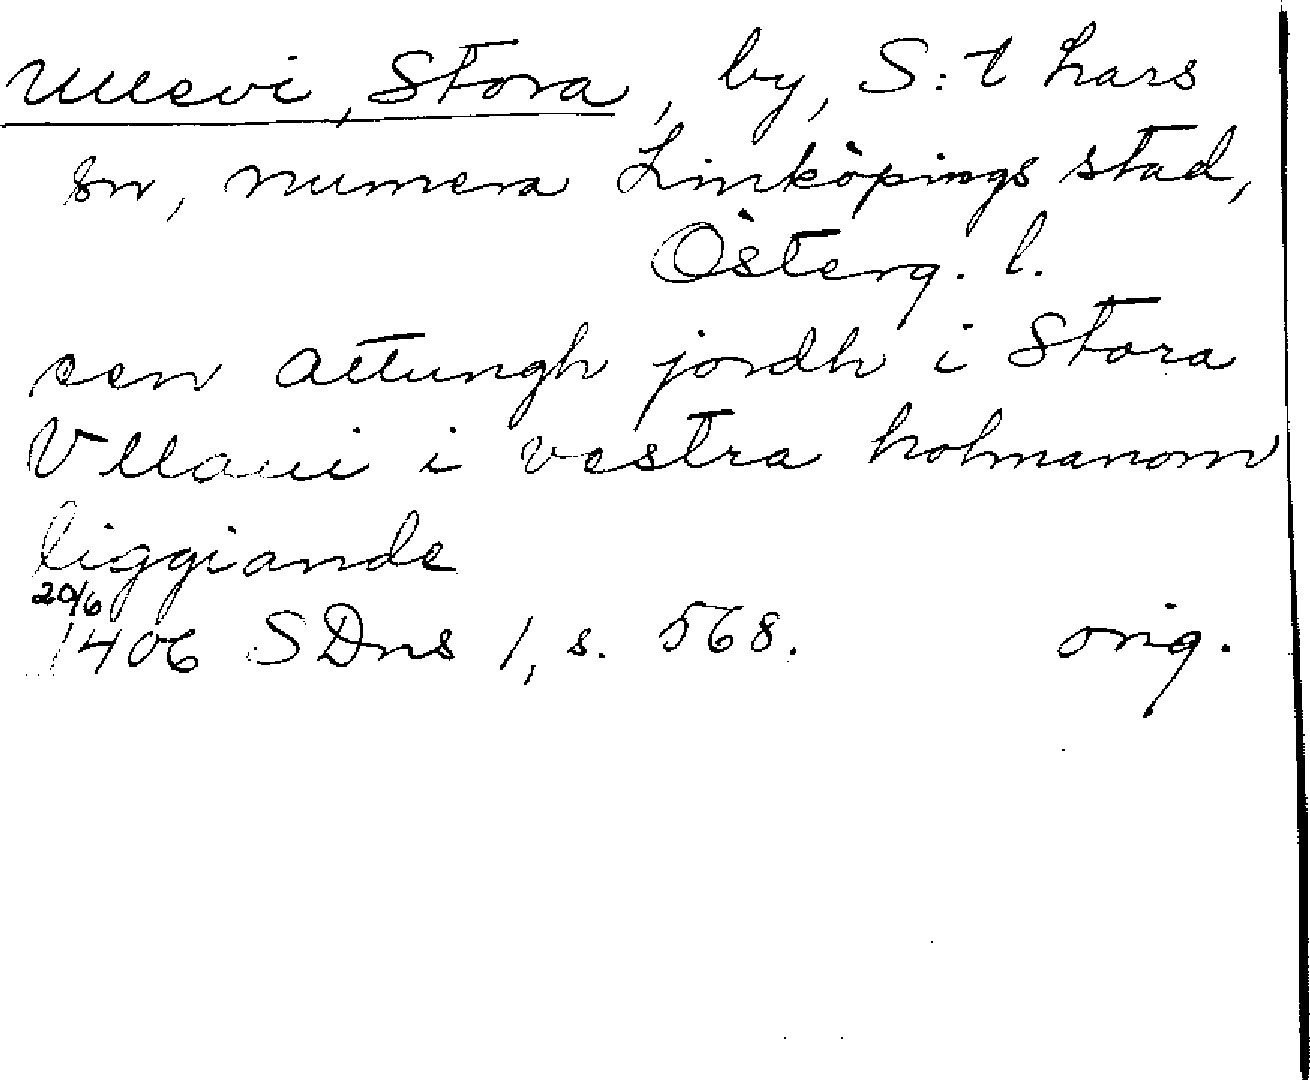 Ullevi, Stora, by, S:t Lars
sn, numera Linköpings stad,
Österg. l.
een attungh jordh i Stora
Vllaui i vestra holmanom
liggiande
20/6
1406 SDns 1, s. 568. orig.